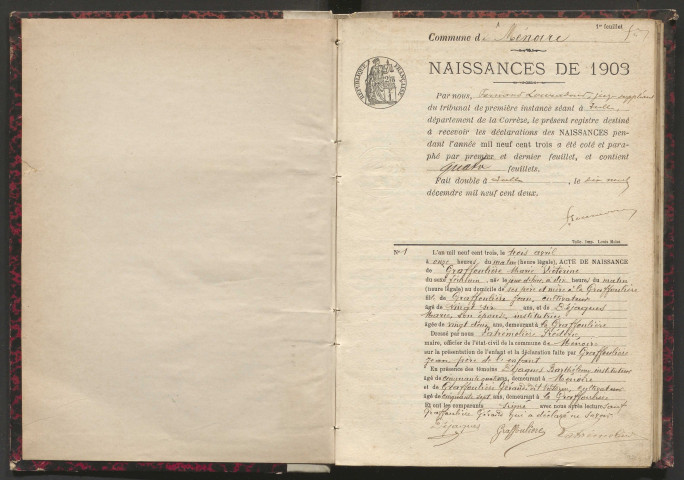 1er feuillet
Commune de Ménoire
RÉPUBLIQUE FRANÇAISE
NAISSANCES DE 1903
Par nous, Fernand juge suppléant
du tribunal de première instance séant à Tulle,
département de la Corrèze, le présent registre destiné
à recevoir les déclarations des NAISSANCES pen-
dant l'année mil neuf cent trois a été coté et para-
phé par premier et dernier feuillet, et contient
quatre feuillets.
Fait double à Tulle, le dix neuf
décembre mil neuf cent deux.
Tulle, Imp. Louis Moles.
No 1 L'an mil neuf cent trois, le trois avril
à onze heures du matin (heure légale), ACTE DE NAISSANCE
de Graffoulière Marie Victorine
du sexe féminin, née le jour d'hier, à dix heures du matin
(heure légale) au domicile de ses père et mère à la Graffoulière
fille de Graffoulière Jean, cultivateur
âgé de vingt six ans, et de Déjacques
Marie son épouse, institutrice
âgée de vingt deux ans, demeurant à la Graffoulière
Dressé par nous
maire, officier de l'état-civil de la commune de Ménoire
sur la présentation de l'enfant et la déclaration faite par Graffoulière
Jean père de l'enfant
En présence des témoins Déjacques Barthélemy, instituteur
âgé de cinquante ans, demeurant à Ménoire
et de Graffoulière Géraud dit cultivateur
âgé de cinquante sept ans, demeurant à la Graffoulière
Et ont les comparants signé avec nous après lecture, sauf
Graffoulière Géraud qui a déclaré ne savoir
Déjacques Graffoulière